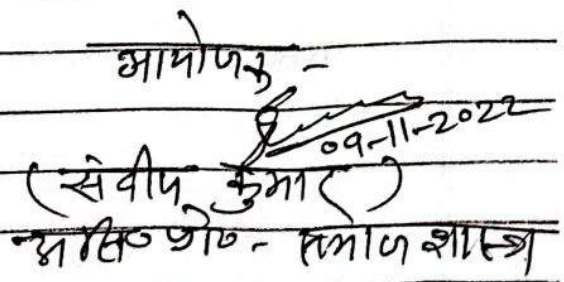 आयोजक -
09-11-2022
(संदीप कुमार)
असि० प्रो० - समाज शास्त्र